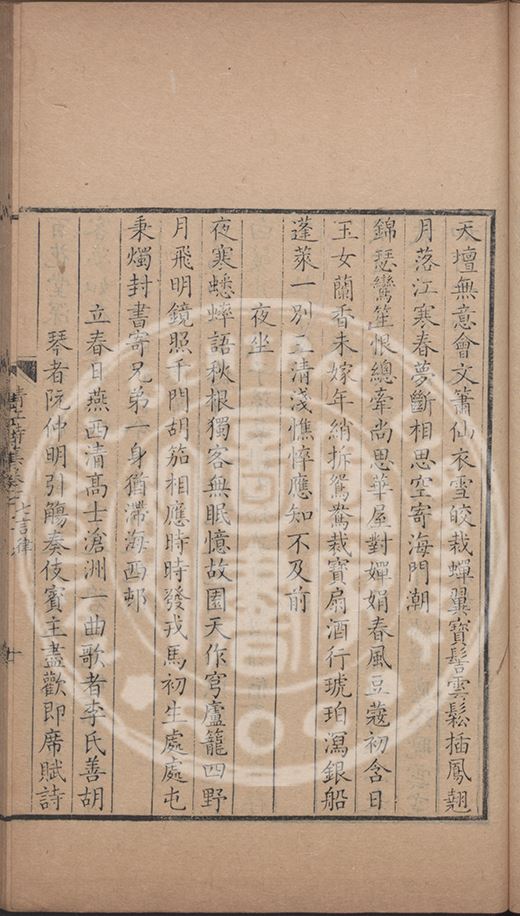 天壇無意會文簫仙衣雪皎裁蟬翼寶髻雲鬆插鳳翹
月落江寒春夢斷相思空寄海門潮
錦瑟鸞笙恨總牽尚思華屋對嬋娟春風豆蔻初含日
玉女蘭香未嫁年綃拆鴛鴦裁寶扇酒行琥珀瀉銀船
蓬萊一別三清淺憔悴應知不及前
夜坐
夜寒蟋蟀語秋根獨客無眠憶故園天作穹廬籠四野
月飛明鏡照千門胡笳相應時時發戎馬初生處處屯
秉燭封書寄兄弟一身猶滯海西邨
立春日燕西清高士滄洲一曲歌者李氏善胡
琴者阮仲明引觴奏伎賓主盡歡即席賦詩
七言律